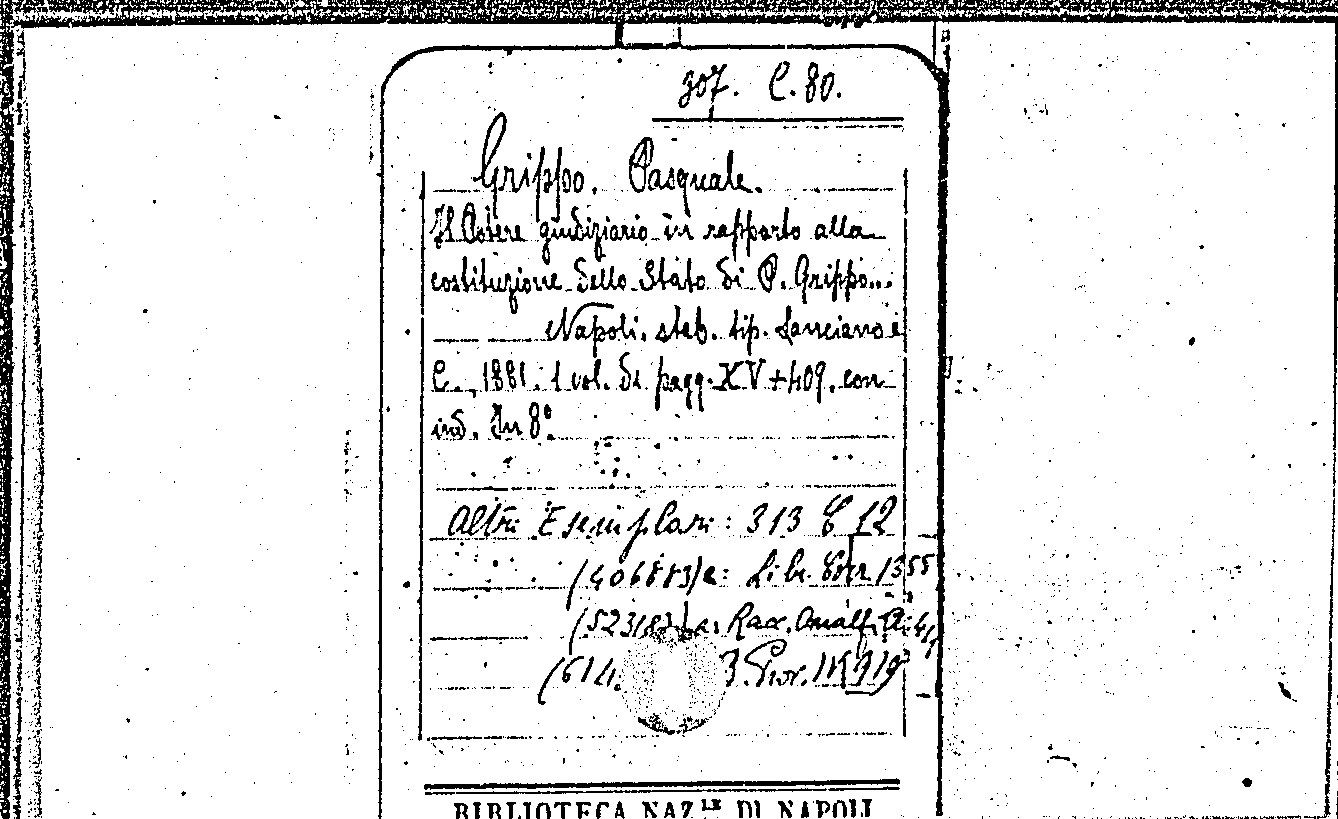 307. C. 80.
Grippo. Pasquale.
Il Potere giudiziario in rapporto alla
costituzione dello Stato di P. Grippo...
Napoli. stab. tip. Lanciano e
C., 1881. 1 vol. di pagg. XV + 409. con
ind. In 8°.
Altri Esemplari: 313 C 12
Libr. 1355
Racc. Amalf. A.
BIBLIOTECA NAZ.LE DI NAPOLI